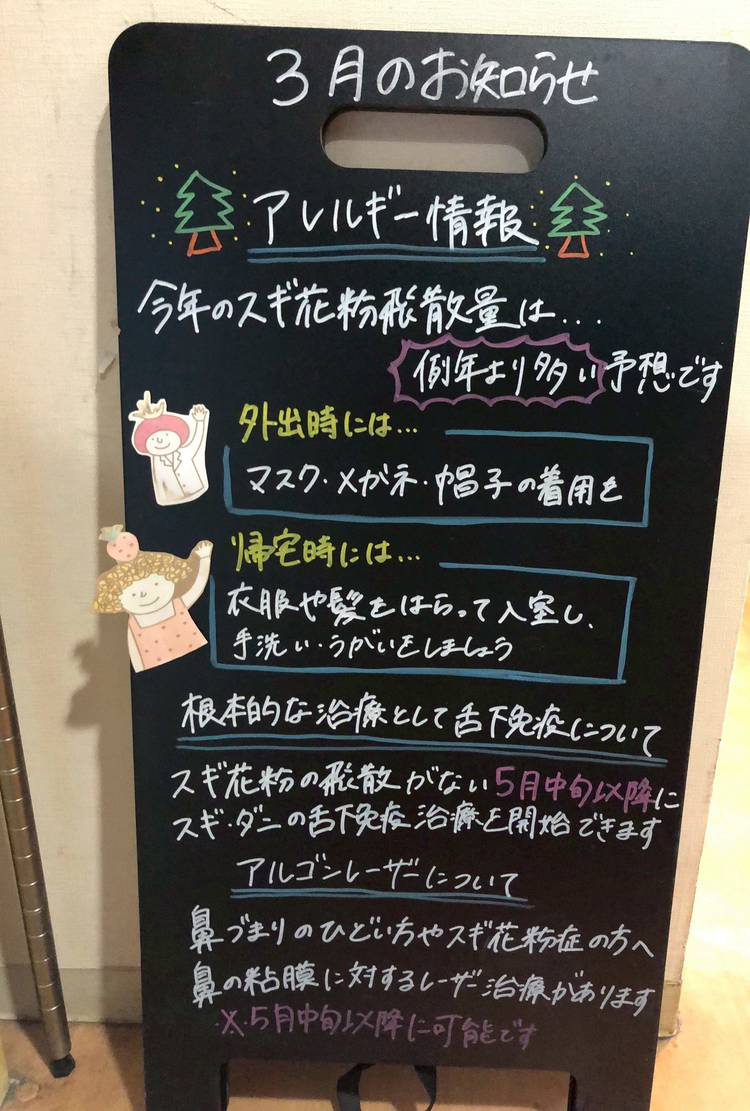 3月のお知らせ
アレルギー情報
今年のスギ花粉飛散量は...
例年より多い予想です
外出時には...
マスク・メガネ・帽子の着用を
帰宅時には...
衣服や髪をはらって入室し、
手洗い・うがいをしましょう
根本的な治療として舌下免疫について
スギ花粉の飛散がない5月中旬以降に
スギ・ダニの舌下免疫治療を開始できます
アルゴンレーザーについて
鼻づまりのひどい方やスギ花粉症の方へ
鼻の粘膜に対するレーザー治療があります
※5月中旬以降に可能です